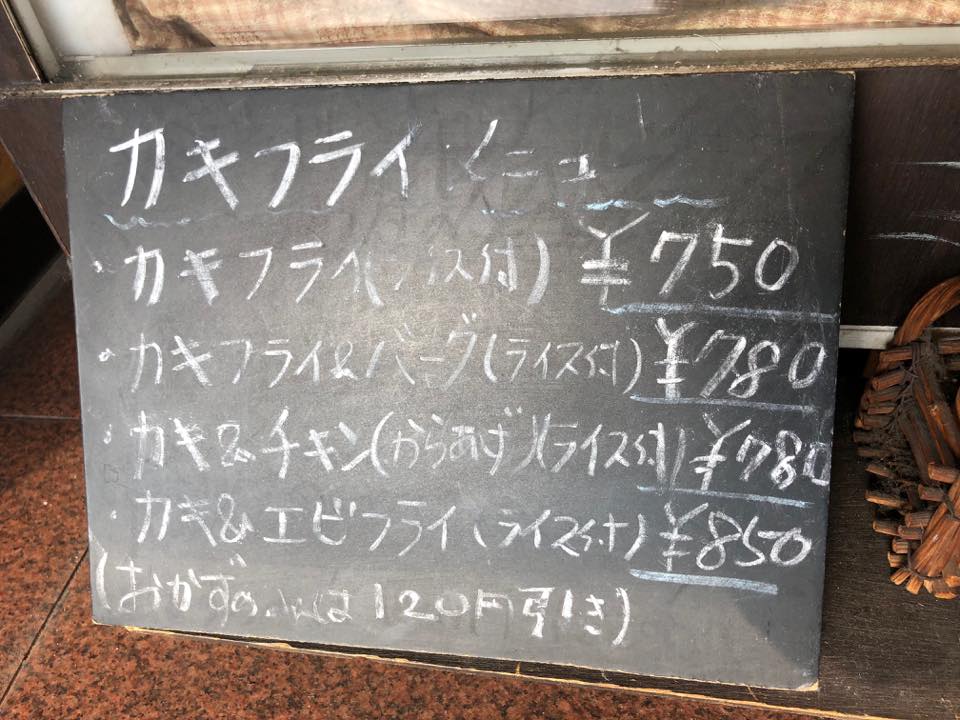 カキフライメニュー
・カキフライ(ライス付) ¥750
・カキフライ&バーグ(ライス付) ¥780
・カキ&チキン(からあげ)(ライス付) ¥780
・カキ&エビフライ(ライス付) ¥850
(おかずのみは120円引き)